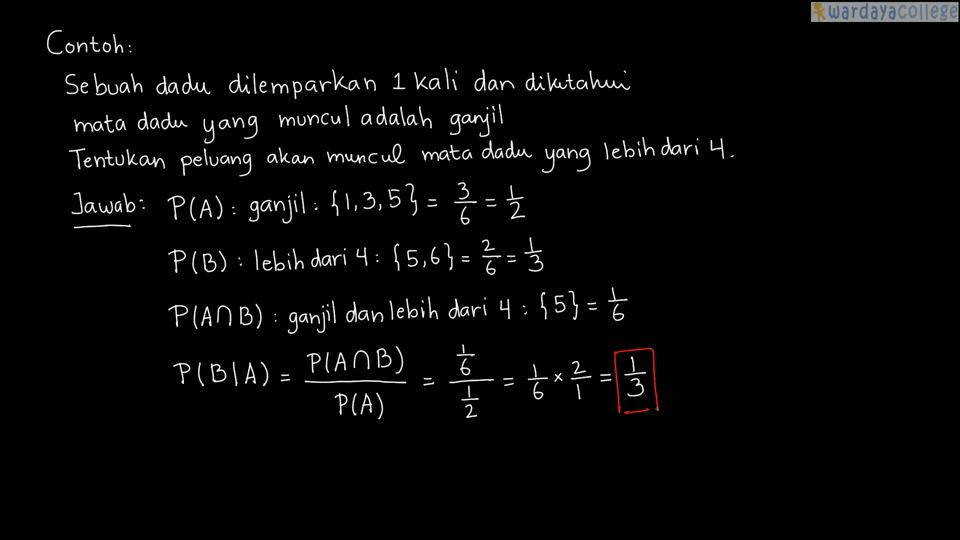 wardayacollege
Contoh:
Sebuah dadu dilemparkan 1 kali dan diketahui
mata dadu yang muncul adalah ganjil
Tentukan peluang akan muncul mata dadu yang lebih dari 4.
Jawab: P(A) : ganjil : {1, 3, 5} = 3/6 = 1/2
P(B) : lebih dari 4 : {5, 6} = 2/6 = 1/3
P(A∩B) : ganjil dan lebih dari 4 : {5} = 1/6
P(B|A) = P(A∩B)/P(A) = (1/6)/(1/2) = 1/6 × 2/1 = 1/3